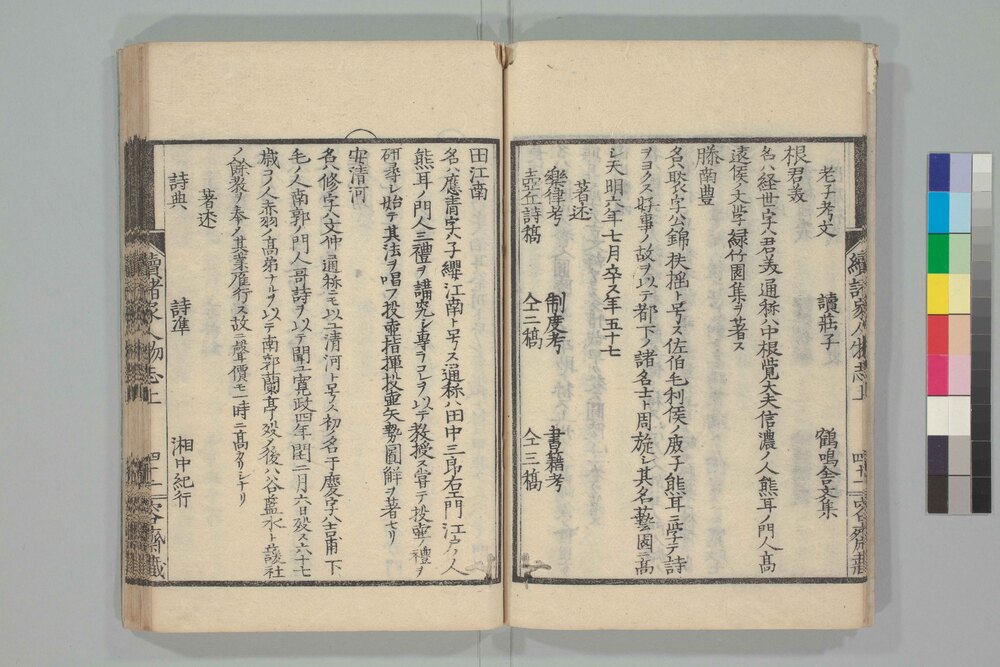 老子考文　讀莊子　鶴鳴舎文集
根君義
名ハ経世字ハ君義通称ハ中根覚太夫信濃ノ人熊耳ノ門人高
遠侯ノ文学緑竹園集ヲ著ス
滕南豊
名ハ聚字ハ公錦扶揺ト号ス佐伯毛利侯ノ庶子熊耳ニ学テ詩
ヲヨクス好事ノ故ヲ以テ都下ノ諸名士ト周旋シ其名藝囿ニ高
シ天明六年七月卒ス年五十七
著述
樂律考　制度考　書籍考
壺丘詩稿　仝二稿　仝三稿
田江南
名ハ應清字ハ子纓江南ト号ス通称ハ田中三郎右エ門江戸ノ人
熊耳ノ門人三禮ヲ講究シ專ラコレヲ以テ教授ス嘗テ投壷ノ禮ヲ
研尋シ始テ其法ヲ唱フ投壷指揮投壷矢勢圖解ヲ著セリ
安清河
名ハ修字ハ文仲通称モ以ユ清河ト号ス初名于慶字ハ圭甫下
毛ノ人南郭ノ門人哥詩ヲ以テ聞ユ寛政四年閏二月六日殁ス六十七
歳コノ人赤羽ノ高弟ナルヲ以テ南郭蘭亭殁ノ後ハ谷藍水ト護社
ノ餘裂ヲ奉ノ其業雁行ス故ニ聲價モ一時ニ高カリシナリ
著述
詩典　詩準　湘中紀行
續諸家人物志上　四十二